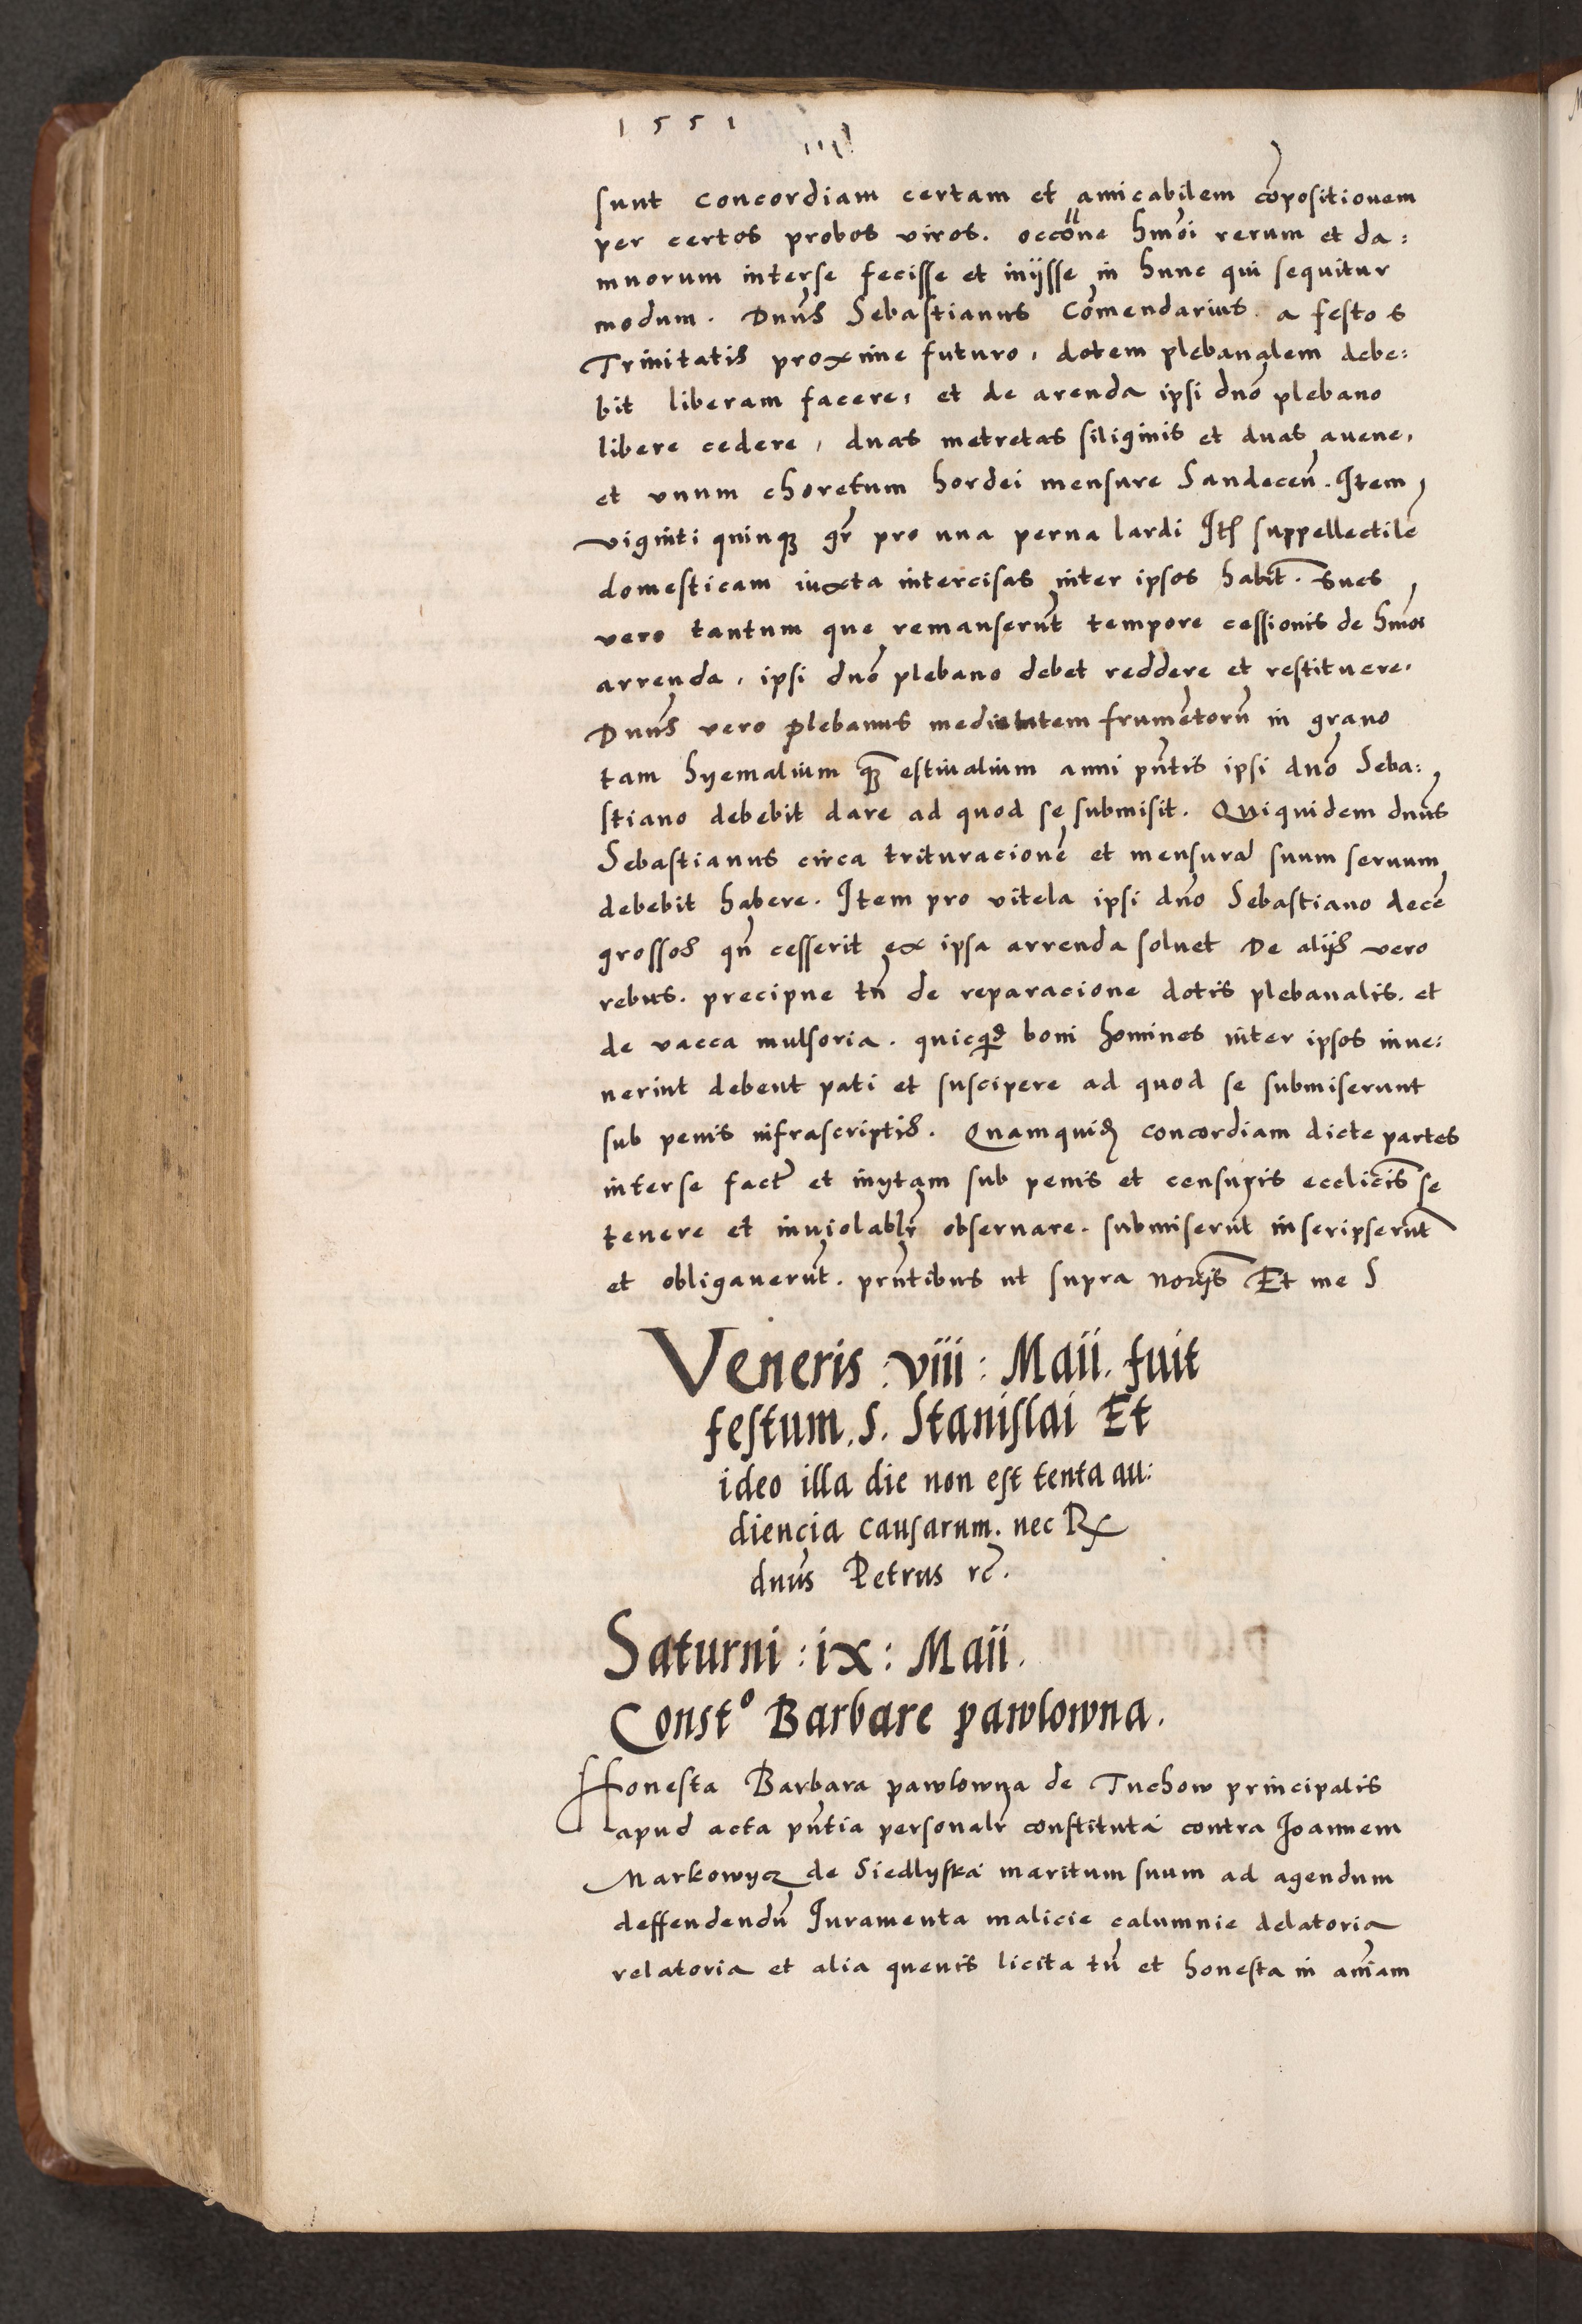 1551
sunt concordiam certam et amicabilem cōpositionem
per certos probos viros. occōne hmōi rerum et da:
mnorum interse fecisse et inijsse in hunc qui sequitur
modum. Dnūs Sebastianus Cōmendarius. a festo s
Trinitatis proxime futuro, dotem plebanalem debe:
bit liberam facere, et de arenda ipsi dnō plebano
libere cedere, duas metretas siliginis et duas auene,
et vnum choretum hordei mensure Sandeceñ. Item
viginti quinqꝫ gr̄ pro una perna lardi Itē suppellectilē
domesticam iuxta intercisas inter ipsos habit̄. Sues
vero tantum que remanserūt tempore cessionis de hmōi
arrenda, ipsi dnō plebano debet reddere et restituere.
Dnūs vero Plebanus medietatem frumētorū in grano
tam hyemalium qꝫ estiualium anni pn̄tis ipsi dnō Seba:
stiano debebit dare ad quod se submisit. Quiquidem dnūs
Sebastianus circa trituracionē et mensurā suum seruum
debebit habere. Item pro vitela ipsi dnō Sebastiano decē
grossos qn̄ cesserit ex ipsa arrenda soluet De alijs vero
rebus. precipue tn̄ de reparacione dotis plebanalis. et
de vacca mulsoria. quicqd̄ boni homines inter ipsos inue:
nerint debent pati et suscipere ad quod se submiserunt
sub penis infrascriptis. Quamquidē concordiam dicte partes
interse factā et initam sub penis et censuris eccliēis se
tenere et inuiolablr̄ obseruare. submiserūt inscripserūt
et obligauerūt. prn̄tibus ut supra norijs Et me S
Veneris : viii : Maii. fuit
festum. S. Stanislai Et
ideo illa die non est tenta au:
diencia causarum. nec Rx
dnūs Petrus rc̄.
Saturni : ix : Maii.
Constº Barbare pawlowna.
Honesta Barbara pawlowna de Tuchow principalis
apud acta pn̄tia personalr̄ constituta contra Joannem
Markowycz de Siedlyska maritum suum ad agendum
deffendendū Juramenta malicie calumnie delatoria
relatoria et alia quevis licita tn̄ et honesta in anīam